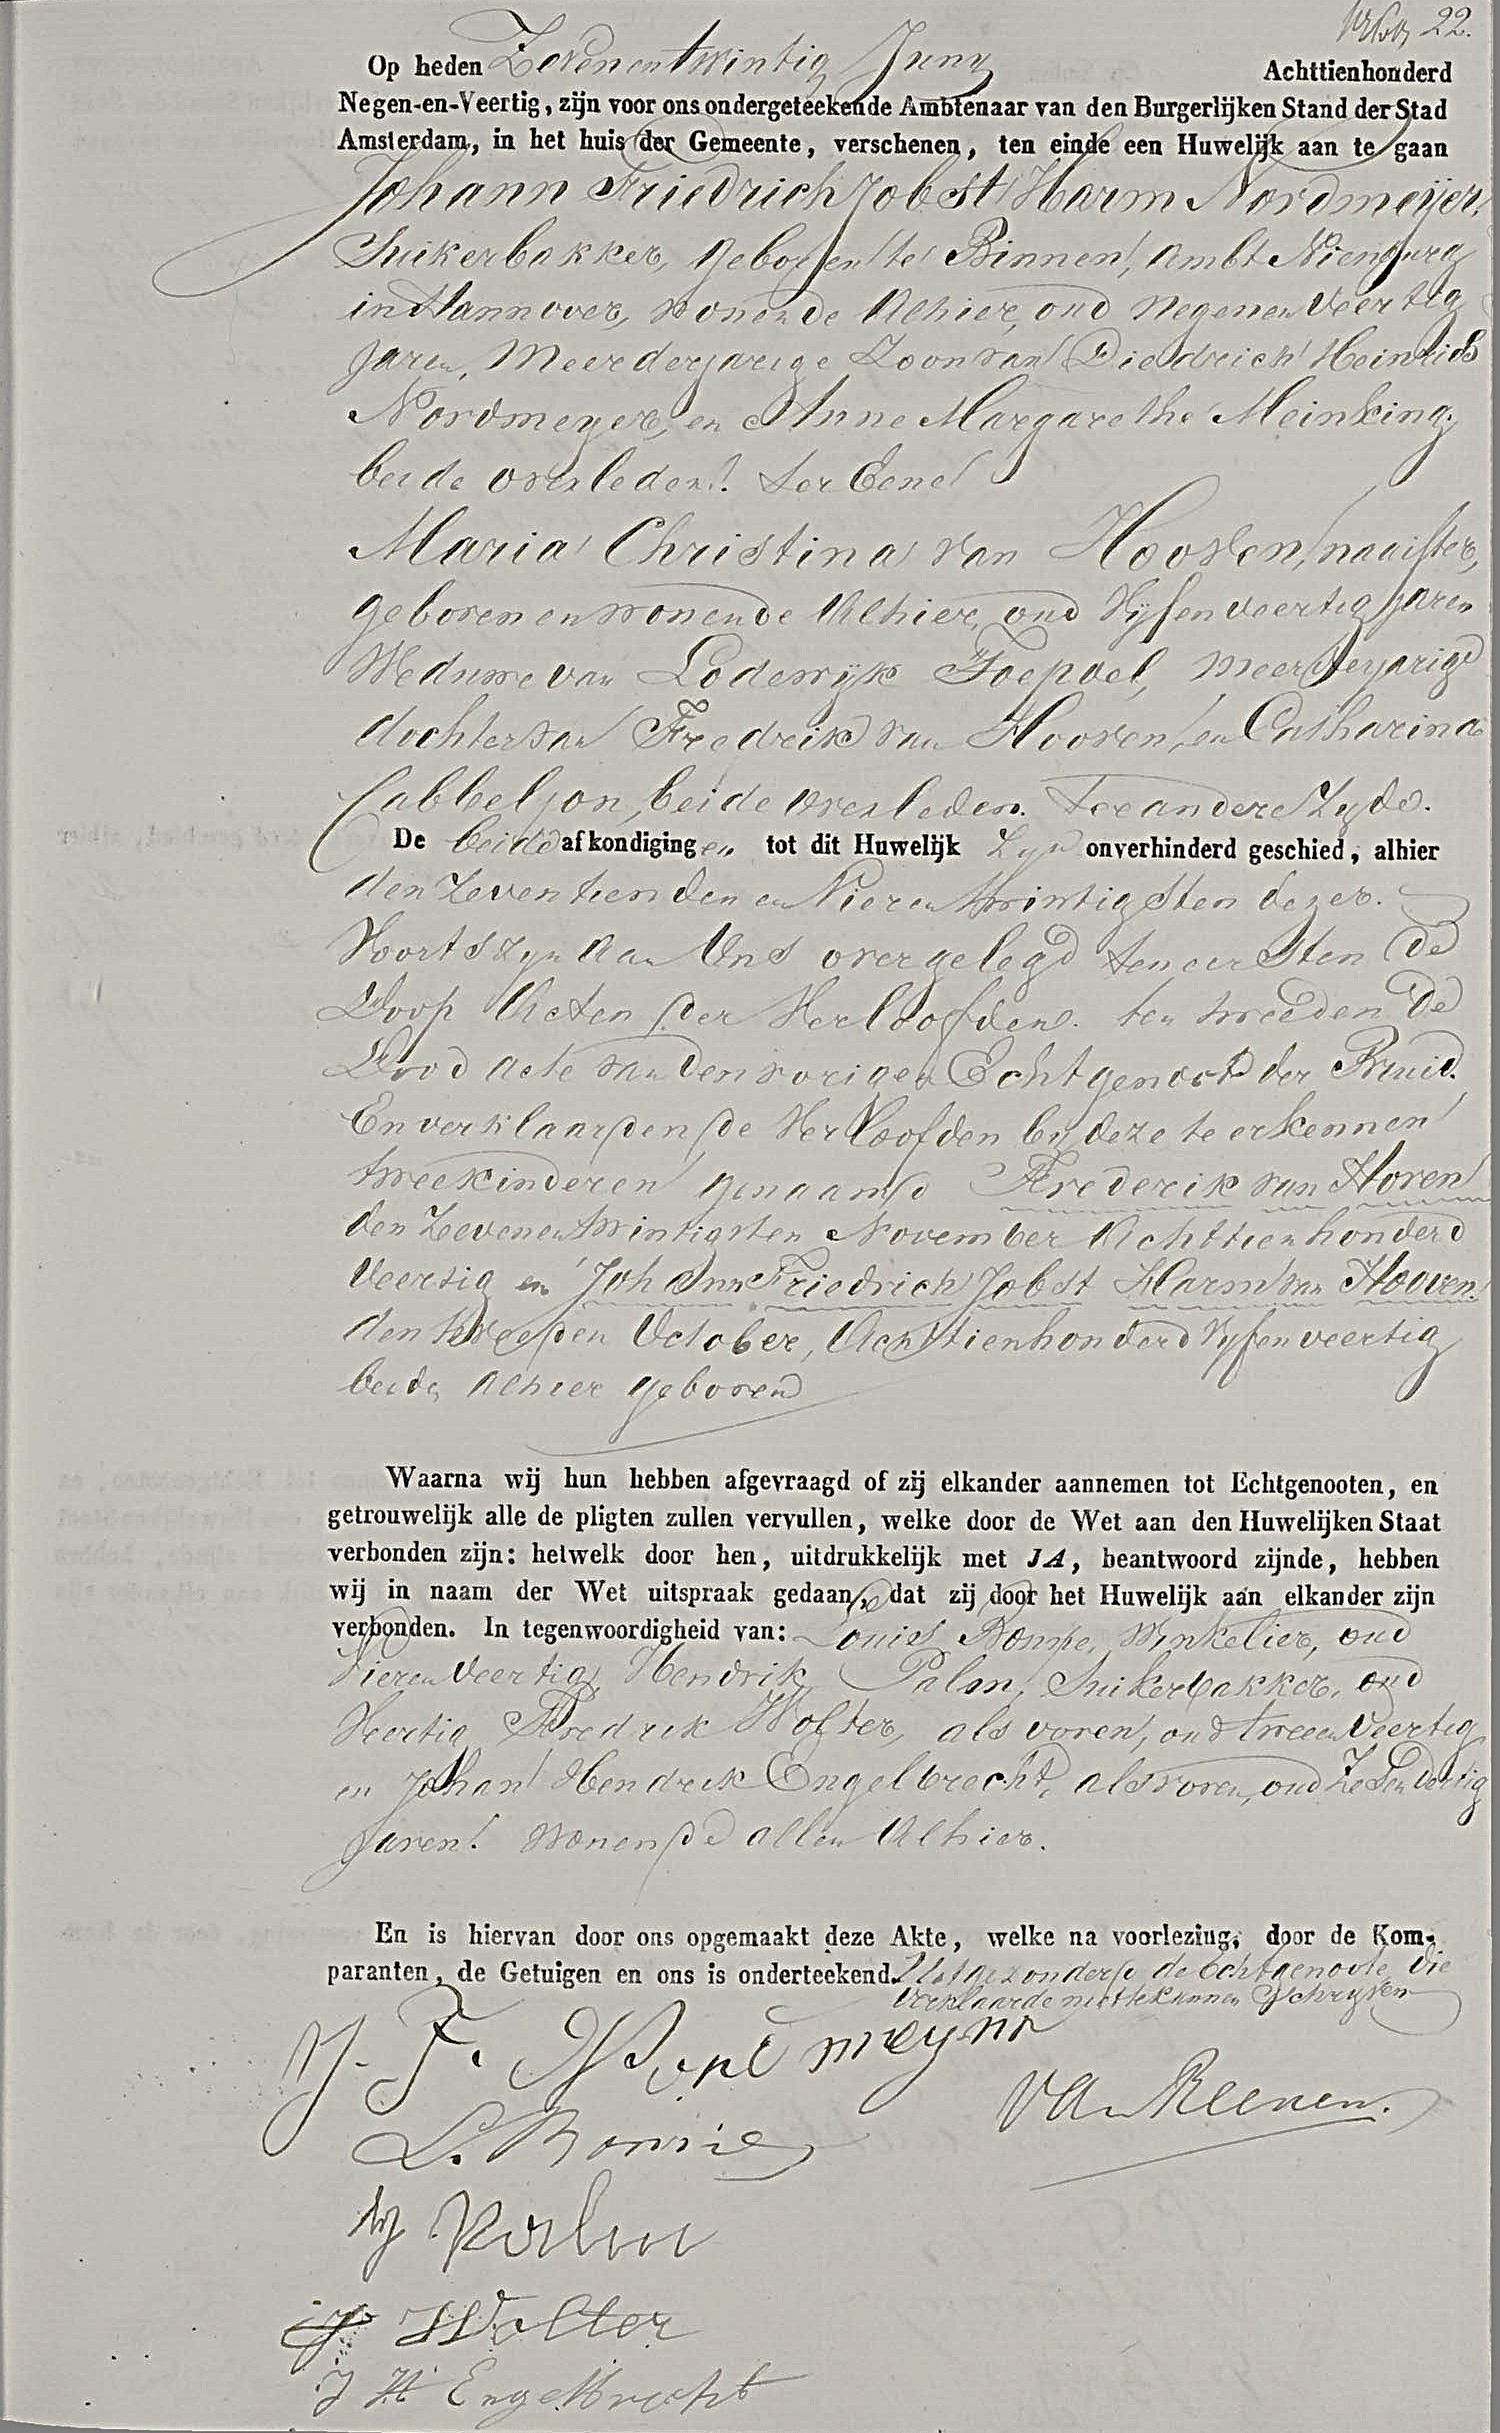 22.
Op heden Zevenentwintig Juny Achttienhonderd
Negen-en-Veertig, zijn voor ons ondergeteekende Ambtenaar van den Burgerlijken Stand der Stad
Amsterdam, in het huis der Gemeente, verschenen, ten einde een Huwelijk aan te gaan
Johann Friedrich Jobst Harm Nordmeijer,
Suikerbakker, geboren te Binnen, Ambt Nienburg
in Hannover, wonende Alhier, oud Negenen Veertig
Jaren, Meerderjarige Zoon van Diedrich Heinrich
Nordmeyer, en Anne Margarethe Meinking,
beide overleden. ter Eene
Maria Christina van Hooven, naaister,
geboren en wonende Alhier, oud Vyfenveertig Jaren
Weduwe van Lodewyk Toepoel, meerderjarige
dochter van Fredrik van Hooven, en Catharina
Cabbeljon, beide overleden. ter andere Zyde.
De beide afkondigingen tot dit Huwelijk Zyn onverhinderd geschied, alhier
den Zeventienden en Vierentwintigsten dezer.
Voorts zyn Aan Ons overgelegd ten eersten de
Doop Acten der Verloofden. ten tweeden de
Dood acte van den vorigen Echtgenoot der Bruid.
En verklaarden de Verloofden by deze te erkennen
twee kinderen genaamd Frederik van Hoven
den Zevenentwintigsten November Achttienhonderd
Veertig en Johann Friedrich Jobst Harm van Hooven
den tweeden October, Achttienhonderd Vyfenveertig
beide Alhier geboren
Waarna wij hun hebben afgevraagd of zij elkander aannemen tot Echtgenooten, en
getrouwelijk alle de pligten zullen vervullen, welke door de Wet aan den Huwelijken Staat
verbonden zijn: hetwelk door hen, uitdrukkelijk met JA, beantwoord zijnde, hebben
wij in naam der Wet uitspraak gedaan, dat zij door het Huwelijk aan elkander zijn
verbonden. In tegenwoordigheid van: Louis Winkelier, oud
Vierenveertig, Hendrik Palm, Suikerbakker, oud
Veertig Fredrik Wolter, als voren, oud tweeenveertig
en Johan Hendrik Engelbrecht, als voren, oud Zesendertig
Jaren. wonende allen Alhier.
En is hiervan door ons opgemaakt deze Akte, welke na voorlezing, door de Kom-
paranten, de Getuigen en ons is onderteekend. Uitgezonderd de Echtgenoote, die
verklaarde niet te kunnen Schryven
J. F. Nordmeyer
Van Reenen.
L.
H Palm
F Wolter
J H Engelbrecht